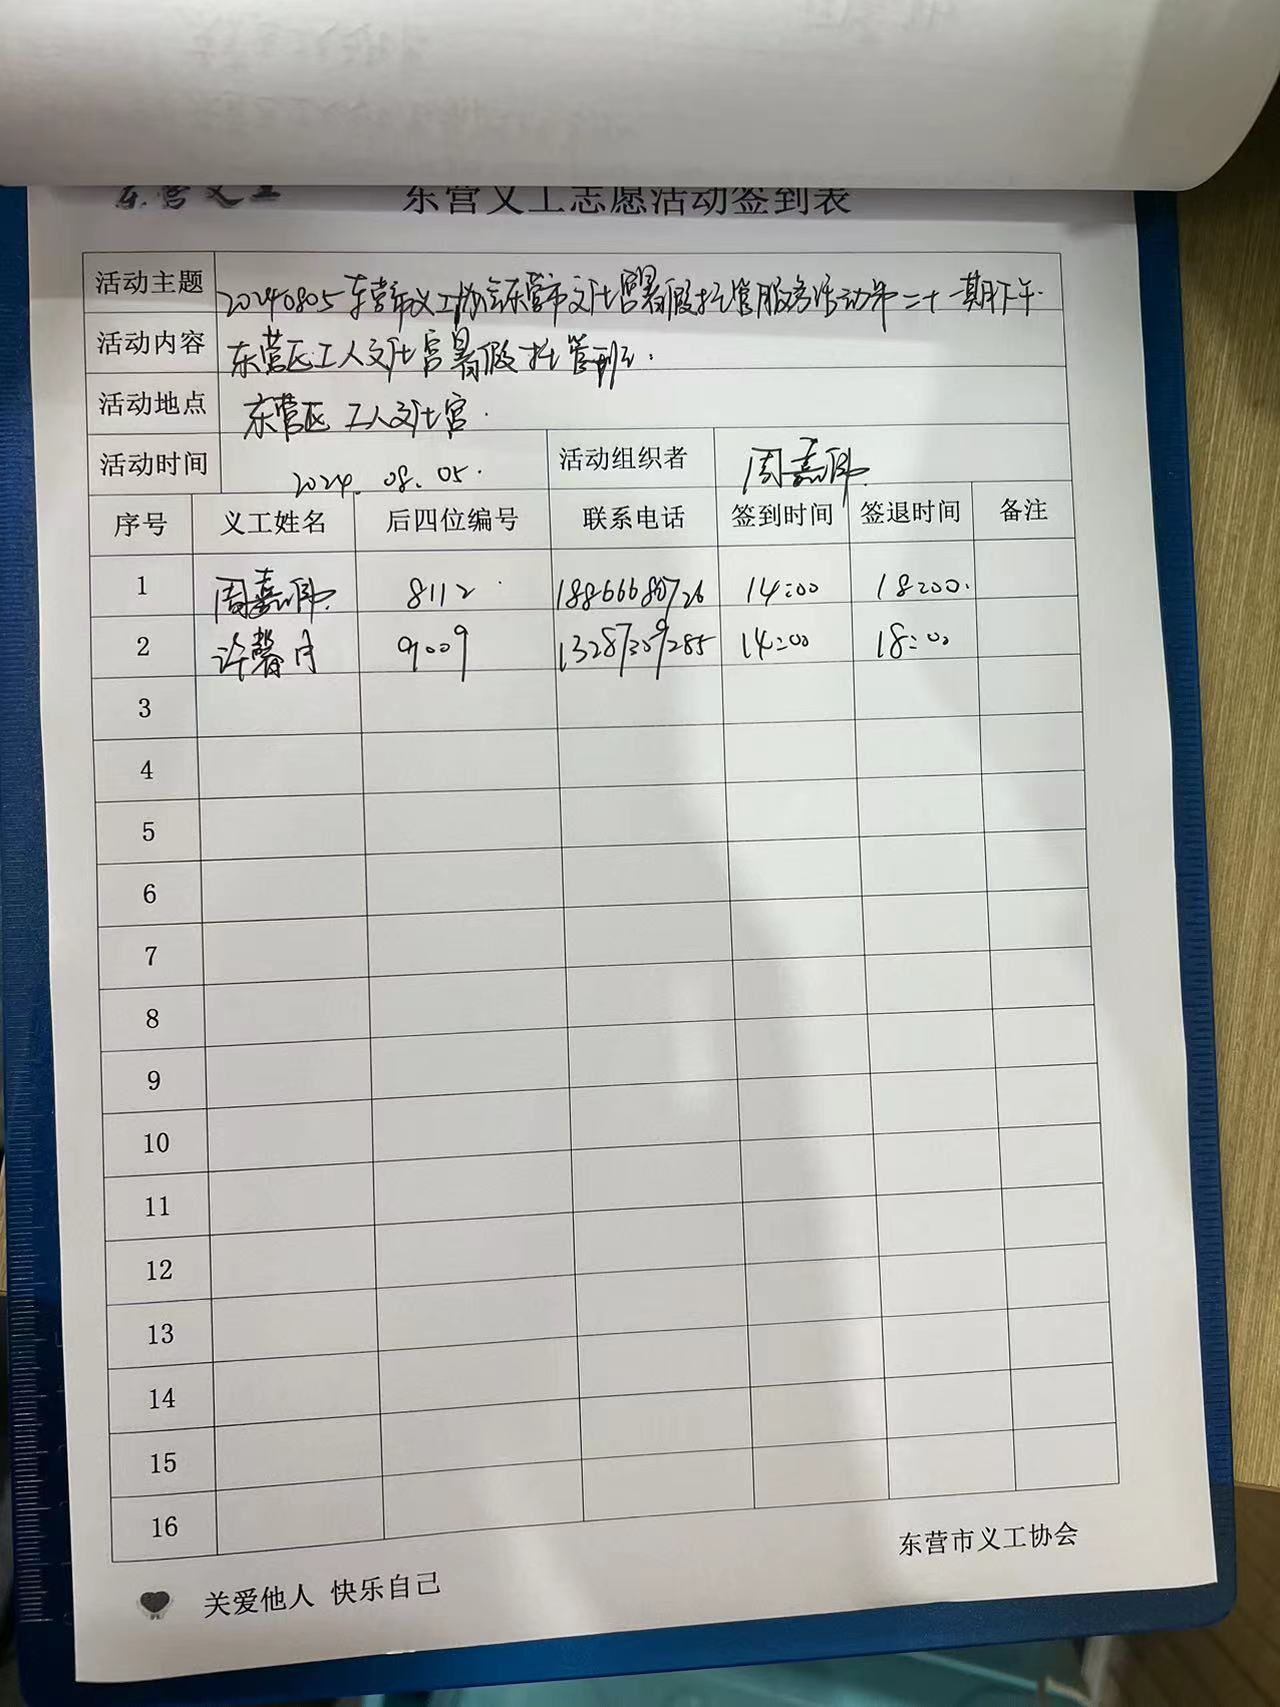 东营义工 东营义工志愿活动签到表
活动主题 20240805东营市义工协会东营市文化宫暑假托管服务活动第二十一期下午.
活动内容 东营区工人文化宫暑假托管班.
活动地点 东营区工人文化宫.
活动时间 2024.08.05. 活动组织者 周嘉伟
序号 义工姓名 后四位编号 联系电话 签到时间 签退时间 备注
1 周嘉伟 8112 14:00 18:00.
2 许馨月 9009 14:00 18:00
3
4
5
6
7
8
9
10
11
12
13
14
15
16
东营市义工协会
关爱他人 快乐自己